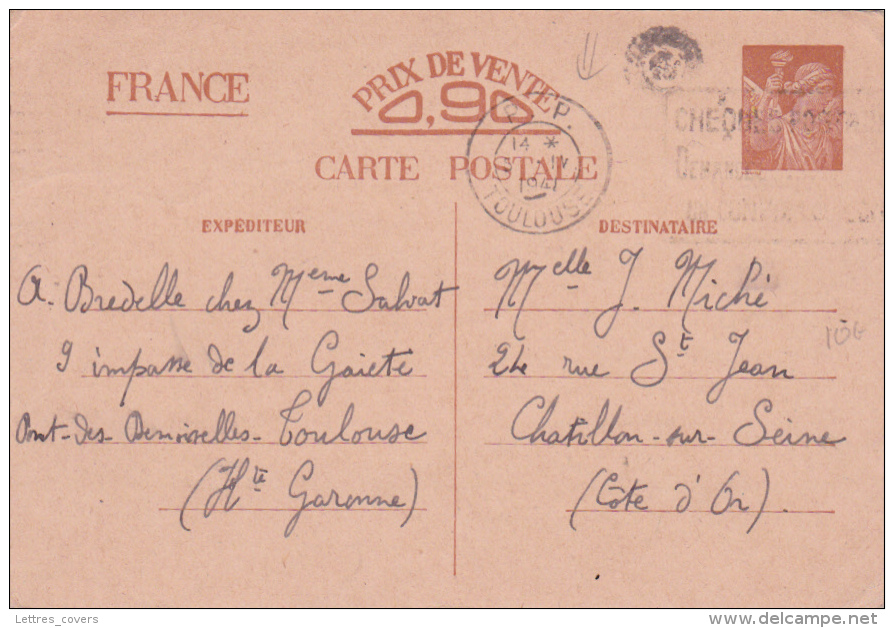 FRANCE
PRIX DE VENTE
0,90
CARTE POSTALE
P.P.
14 *
1941
TOULOUSE
CHEQUES
DEMANDEZ
UN
EXPÉDITEUR
A. Bredelle chez Meme Salvat
9 impasse de la Gaieté
Pont-des-Demoiselles-Toulouse
(Hte Garonne)
DESTINATAIRE
Melle J. Miché
24 rue St Jean
Chatillon-sur-Seine
(Côte d'Or).
Lettres_covers
delcampe.net